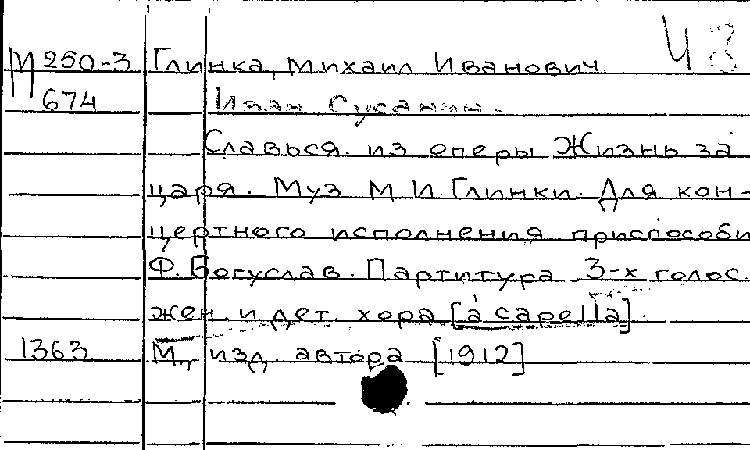 М 250-3 Глинка, Михаил Иванович
674 Иван Сусанин.
Славься. из оперы Жизнь за
царя. Муз М И Глинки. Для кон-
цертного исполнения приспособи
Ф. Богуслав. Партитура 3-х голос.
жен. и дет. хора [a capella]
1363 М., изд. автора [1912]